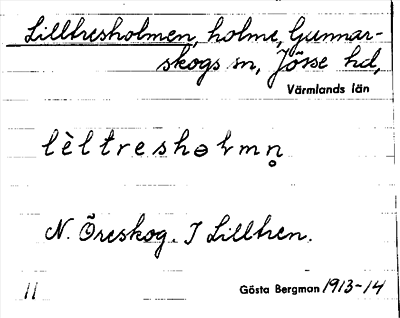 Lilltresholmen, holme, Gunnar-
skogs sn, Jösse hd,
Värmlands län
lèltresholmn̥
N. Öreskog. I Lilltren.
11 Gösta Bergman 1913-14